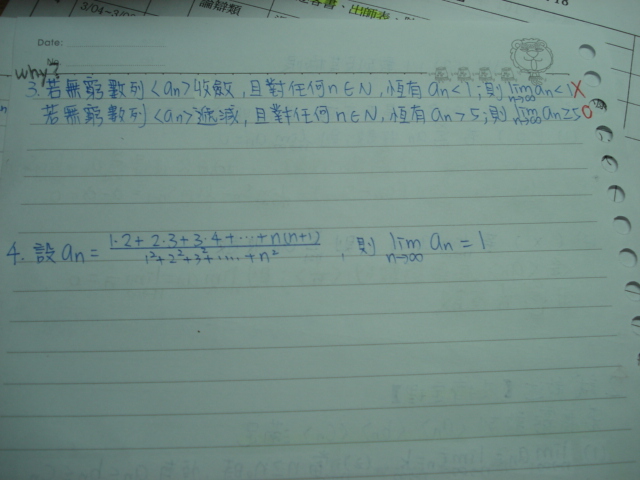 3/04~3/0 論辯類 客書、出師表、
18
Date:
No.
why?
3. 若無窮數列<an>收斂,且對任何n∈N,恆有an<1;則lim n→∞ an<1 X
若無窮數列<an>遞減,且對任何n∈N,恆有an>5;則lim n→∞ an≥5 O
4. 設an= 1·2+2·3+3·4+…+n(n+1) / 1²+2²+3²+…+n² ,則 lim n→∞ an=1